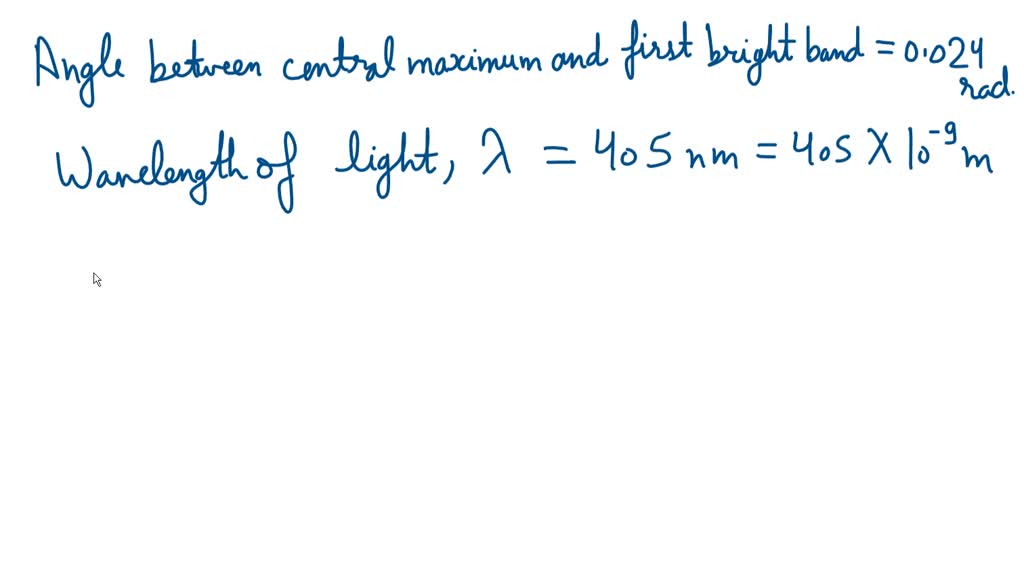 Angle between central maximum and first bright band = 0.024
rad.
Wavelength of light, λ = 405 nm = 405 X 10⁻⁹ m